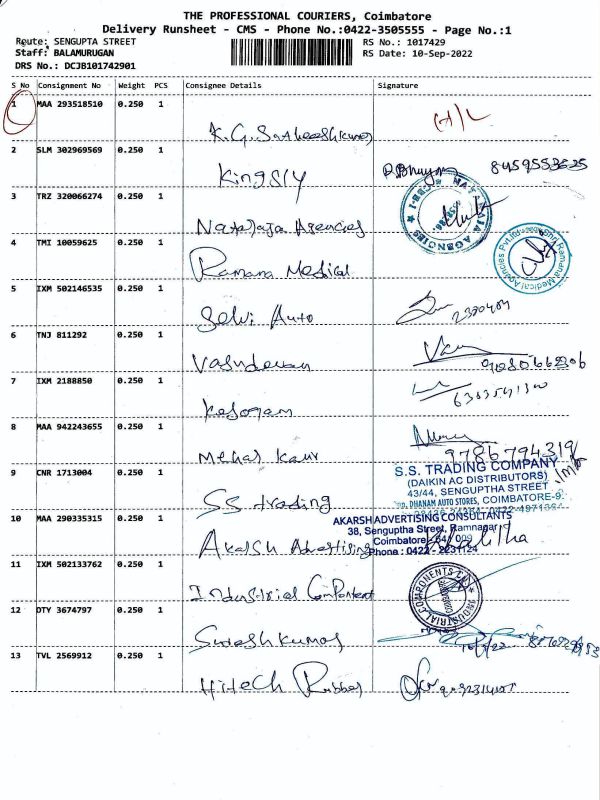 THE PROFESSIONAL COURIERS, Coimbatore
Delivery Runsheet - CMS - Phone No.:0422-3505555 - Page No.:1
Route: SENGUPTA STREET RS No.: 1017429
Staff: BALAMURUGAN RS Date: 10-Sep-2022
DRS No.: DCJB101742901
S No Consignment No Weight PCS Consignee Details Signature
1 MAA 293518510 0.250 1 K.G.Satheeshkumar H/L
2 SLM 302969569 0.250 1 Kingsly 8459553625
3 TRZ 320066274 0.250 1 Nataraja Agencies
4 TMI 10059625 0.250 1 Ramana Medical
5 IXM 502146535 0.250 1 Selvi Auto
6 TNJ 811292 0.250 1 Vasudevan
7 IXM 2188850 0.250 1
8 MAA 942243655 0.250 1 Mehar Kaur 9786794319
9 CNR 1713004 0.250 1 SS trading
S.S. TRADING COMPANY
(DAIKIN AC DISTRIBUTORS)
43/44, SENGUPTHA STREET
DHANAM AUTO STORES, COIMBATORE-9.
10 MAA 290335315 0.250 1 Akarsh Advertising
AKARSH ADVERTISING CONSULTANTS
38, Senguptha Street, Ramnagar
Coimbatore - 641 009
Phone : 0422 - 2231124
11 IXM 502133762 0.250 1 Industrial Component
INDUSTRIAL COMPONENTS
12 DTY 3674797 0.250 1 Sureshkumar
13 TVL 2569912 0.250 1 Hitech Rubber